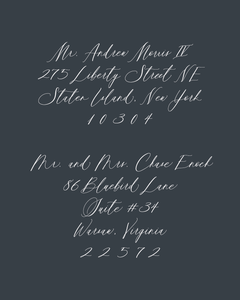 Mr. Andrew Morris IV
275 Liberty Street NE
Staten Island, New York
10304
Mr. and Mrs. Chase Enoch
86 Bluebird Lane
Suite #34
Warsaw, Virginia
22572